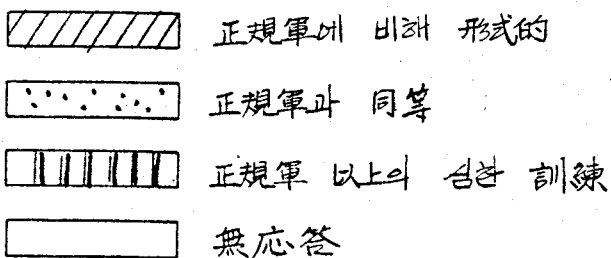 正規軍에 비해 形式的
正規軍과 同等
正規軍 以上의 심한 訓練
無応答